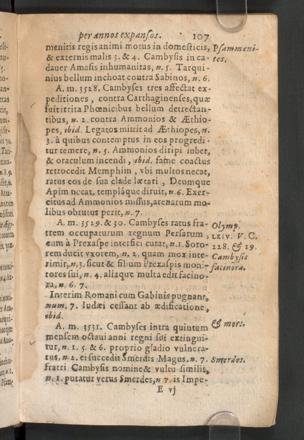 per annos expansos. 107
menitis regis animi motus in domesticis,
& externis malis 3. & 4. Cambysis in ca-
dauer Amasis inhumanitas, n. 5. Tarqui-
nius bellum inchoat contra Sabinos, n. 6.
A. m. 3528. Cambyses tres affectat ex-
peditiones, contra Carthaginenses, quæ
fuit irrita Phœnicibus bellum detrectan-
tibus, n. 2. contra Ammonios & Æthio-
pes, ibid. Legatos mittit ad Æthiopes, n.
3. à quibus contemptus in eos progredi-
tur temere, n. 5. Ammonios diripi iubet,
& oraculum incendi, ibid. fame coactus
retrocedit Memphim, vbi multos necat,
ratus eos de sua clade lætari, Deumque
Apim necat, templáque diruit, n. 6. Exer-
citus ad Ammonios missus, arenarum mo-
libus obrutus perit, n. 7.
A. m. 3529. & 30. Cambyses ratus fra-
trem occupaturum regnum Persarum,
eum à Prexaspe interfici curat, n. 1. Soro-
rem ducit vxorem, n. 2. quam mox inte-
rimit, n. 3. sicut & filium Prexaspis moni-
tores sui, n. 4. aliaque multa edit facino-
ra, n. 6. 7.
Interim Romani cum Gabinis pugnant,
num. 7. Iudæi cessant ab ædificatione,
ibid.
A. m. 3531. Cambyses intra quintum
mensem octaui anni regni sui extingui-
tur, n. 1. 5. & 6. proprio gladio vulnera-
tus, n. 2. ei succedit Smerdis Magus. n. 7.
fratri Cambysis nomine & vultu similis,
n. 1. putatur verus Smerdes, n. 7. is Impe-
E vj
Psammeni-
tes.
Olymp.
LXIV. V. C.
228. & 29.
Cambysis
facinora.
& mors.
Smerdes.